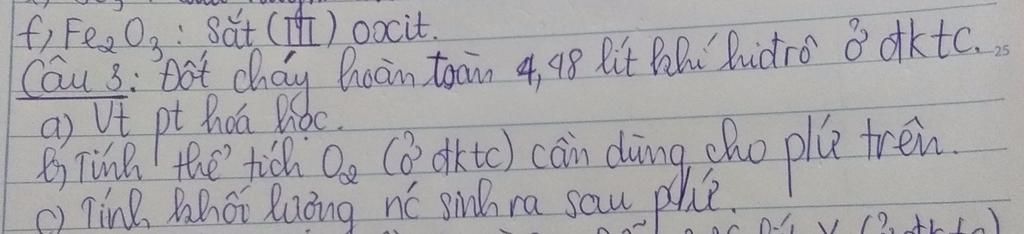 f, Fe2O3: Sắt (III) oxit.
Câu 3: Đốt cháy hoàn toàn 4,48 lít khí hiđrô ở đktc.
a) Vt pt hoá học.
b, Tính thể tích O2 (ở đktc) cần dùng cho pứ trên.
c) Tính khối lượng nc sinh ra sau pứ.